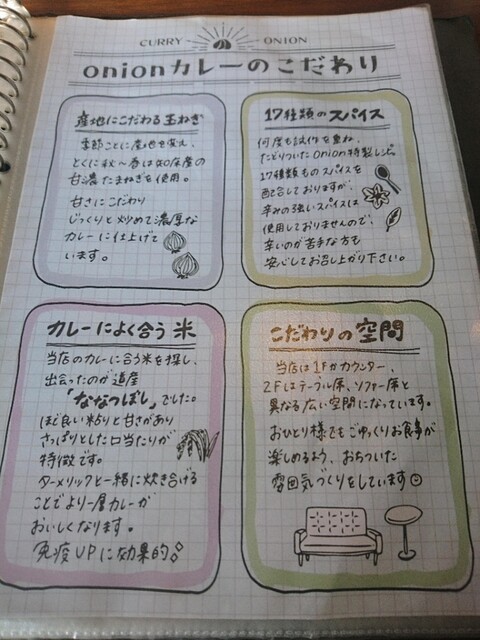 CURRY ONION
onionカレーのこだわり
産地にこだわる玉ねぎ
季節ごとに産地を変え、
とくに秋〜春は知床産の
甘濃たまねぎを使用。
甘さにこだわり
じっくりと炒めて濃厚な
カレーに仕上げて
います。
17種類のスパイス
何度も試作を重ね、
たどりついたonion特製レシピ。
17種類ものスパイスを
配合しておりますが、
辛みの強いスパイスは
使用しておりませんので、
辛いのが苦手な方も
安心してお召し上がり下さい。
カレーによく合う米
当店のカレーに合う米を探し、
出会ったのが道産
「ななつぼし」でした。
ほど良い粘りと甘さがあり
さっぱりとした口当たりが
特徴です。
ターメリックと一緒に炊き合げる
ことでより一層カレーが
おいしくなります。
免疫UPに効果的。
こだわりの空間
当店は1Fがカウンター、
2Fはテーブル席、ソファー席と
異なる広い空間になっています。
おひとり様でもごゆっくりお食事が
楽しめるよう、おちついた
雰囲気づくりをしています☺